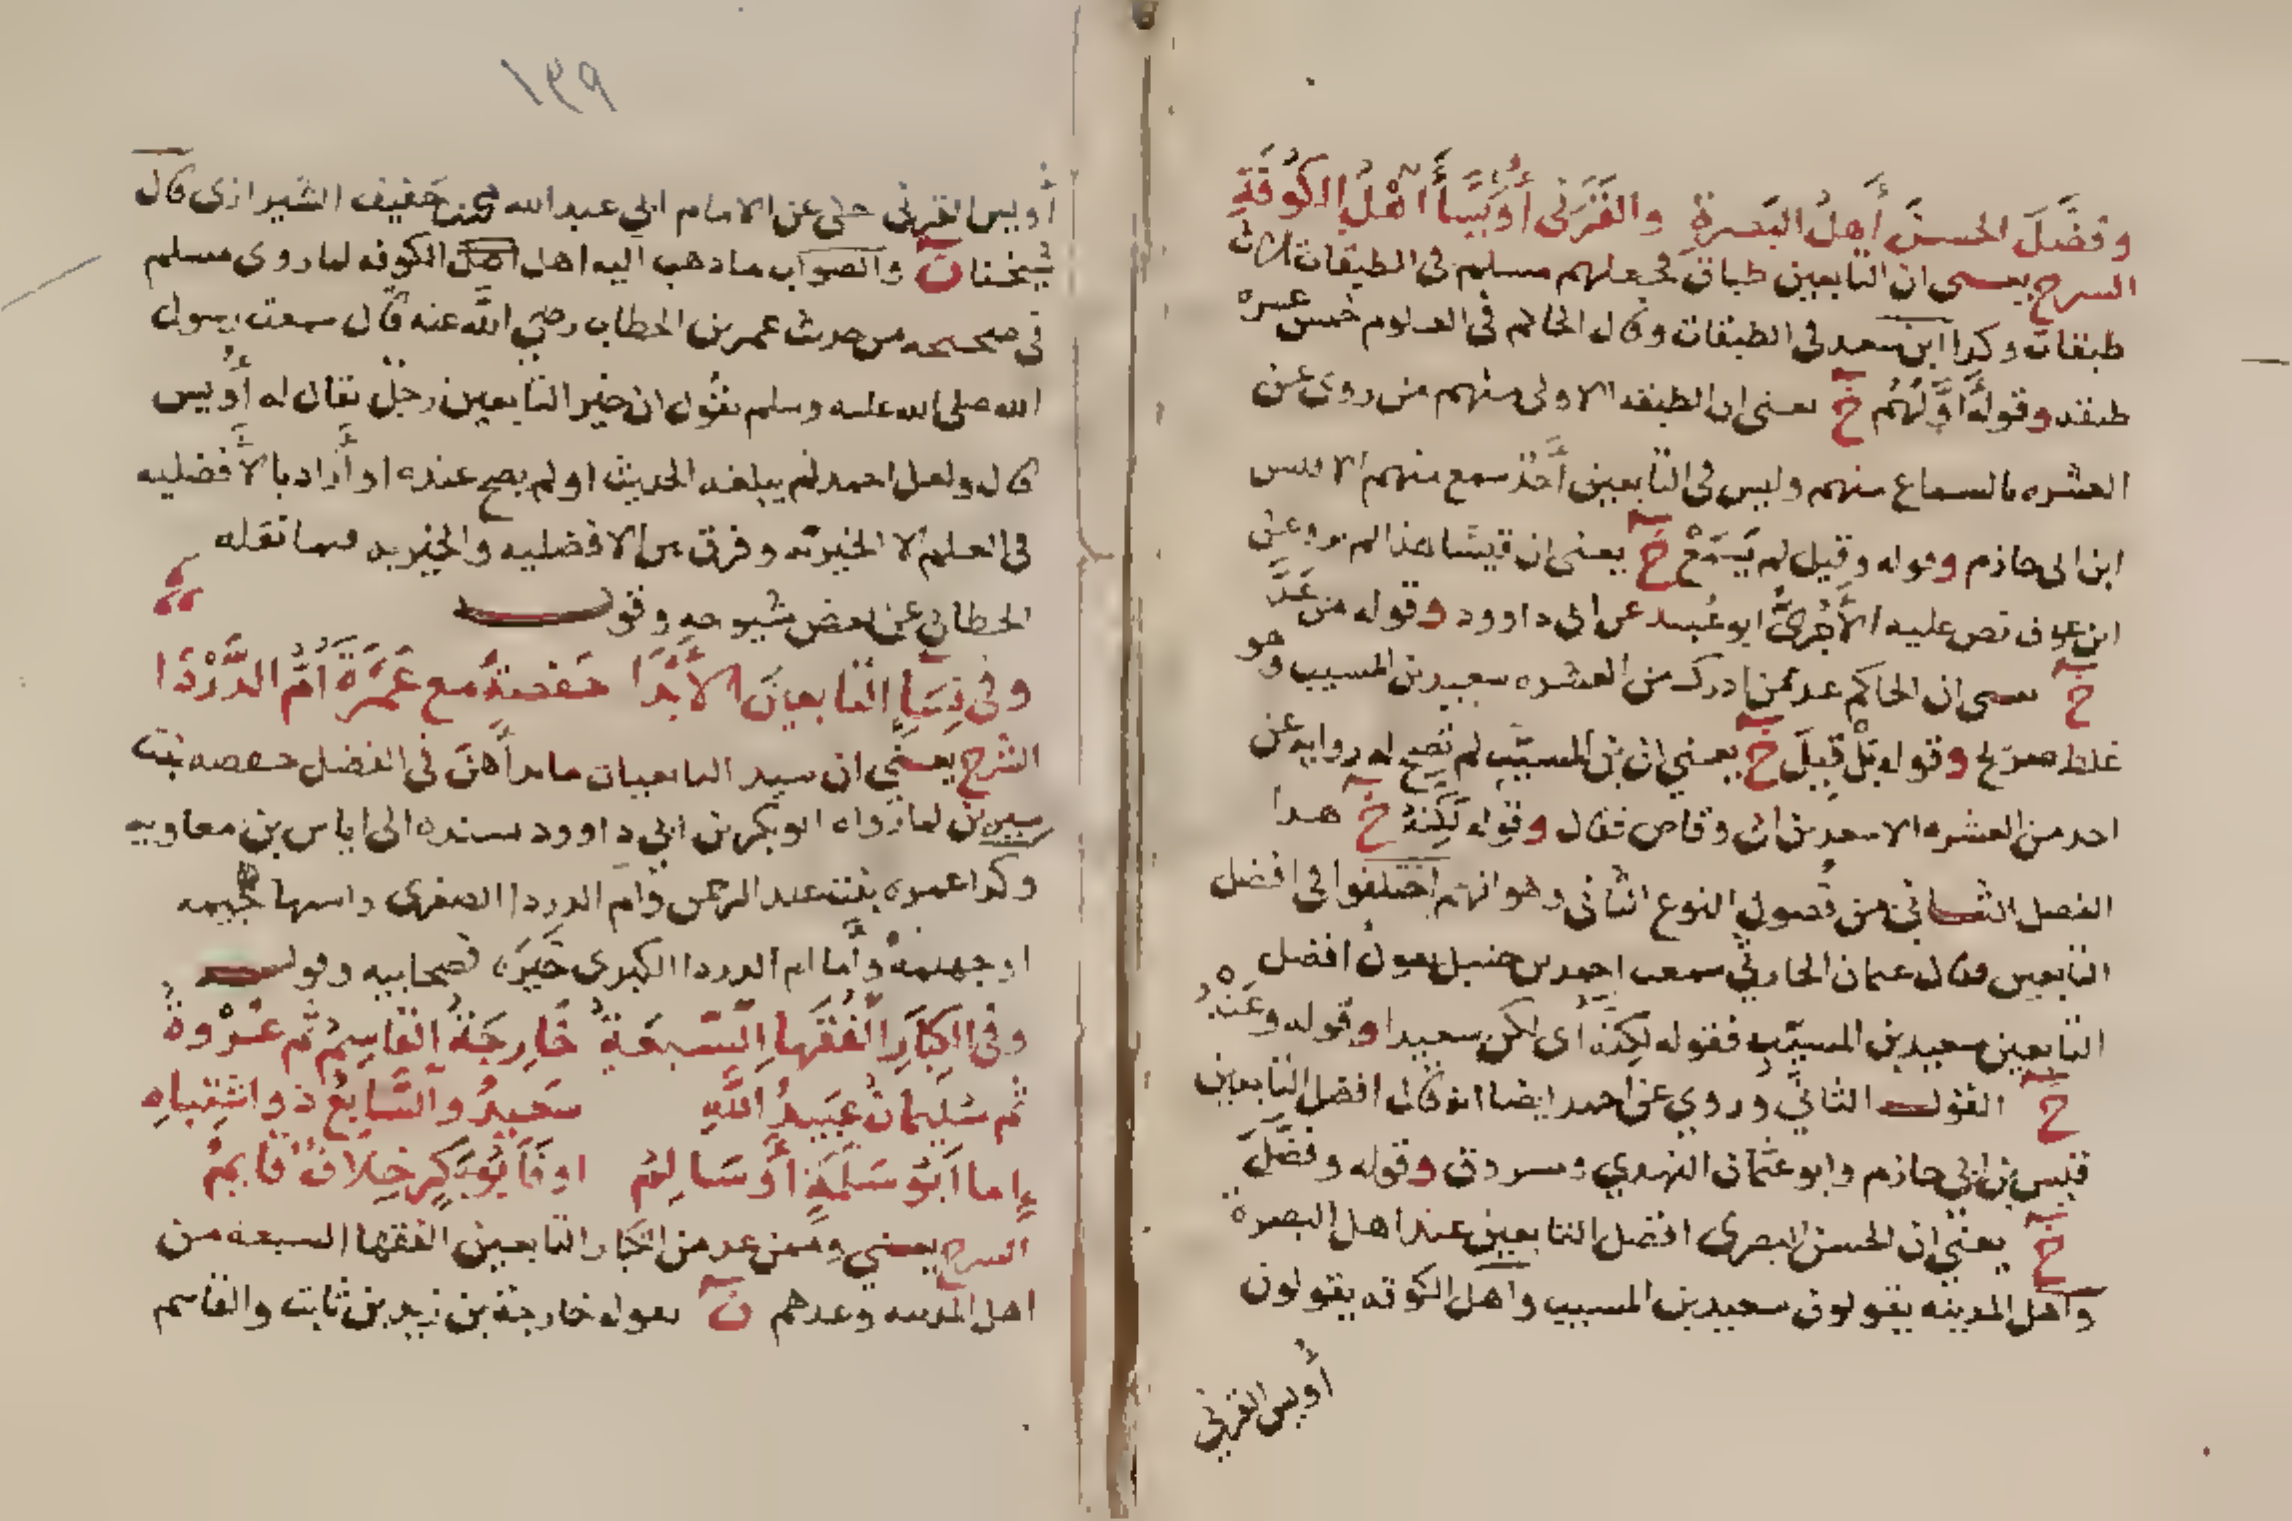 وفضل الحسن أهل البصرة والقرني أويسا أهل الكوفة
الشرح يعني ان التابعين طباق فجعلهم مسلم في الطبقات ثلاث
طبقات وكذا ابن سعد في الطبقات وقال الحاكم في العلوم خمس عشره
طبقه وقوله أولهم خ يعني ان الطبقه الاولى منهم من روى عن
العشره بالسماع منهم وليس في التابعين أحد سمع منهم الا قيس
ابن ابي حازم وقوله وقيل لم يسمع خ يعني ان قيسا هذا لم يرو عن
ابن عوف نص عليه الآجري ابو عبيد عن ابي داوود وقوله من عد
خ يعني ان الحاكم عد ممن ادرك من العشره سعيد بن المسيب وهو
غلط صريح وقوله بل قيل خ يعني ان بن المسيب لم تصح له روايه عن
احد من العشره الا سعد بن ابي وقاص فقال وقوله لكنه خ هذا
الفصل الثاني من فصول النوع الثاني وهو انهم اختلفوا في افضل
التابعين فقال عثمان الحارثي سمعت احمد بن حنبل يقول افضل
التابعين سعيد بن المسيب فقوله لكنه أى لكن سعيدا وقوله وعنه
خ القول الثاني وروي عن احمد ايضا انه قال افضل التابعين
قيس بن ابي حازم وابو عثمان النهدي ومسروق وقوله وفضل
خ يعني ان الحسن البصرى افضل التابعين عند اهل البصرة
وأهل المدينه يقولون سعيد بن المسيب وأهل الكوفه يقولون
أويس القرني
١٣٩
أويس القرني حكى عن الامام ابي عبد الله محمد بن خفيف الشيرازى قال
شيخنا ن والصواب ما ذهب اليه اهل الكوفه لما روى مسلم
في صحيحه من حديث عمر بن الخطاب رضي الله عنه قال سمعت رسول
الله صلى الله عليه وسلم يقول ان خير التابعين رجل يقال له أويس
قال ولعل احمد لم يبلغه الحديث او لم يصح عنده او أراد بالأفضليه
في العلم لا الخيريه وفرق بين الافضليه والخيريه فيما نقله
الخطابي عن بعض شيوخه وقوله
وفي نسا التابعين الأبدا حفصة مع عمرة أم الدردا
الشرح يعني ان سيد التابعيات ما بدأهن في الفضل حفصه بنت
سيرين لما رواه ابو بكر بن ابي داوود بسنده الى اياس بن معاويه
وكذا عمره بنت عبد الرحمن وام الدردا الصغرى واسمها هجيمه
او جهيمه وأما ام الدردا الكبرى خيره فصحابيه وقوله
وفي الكبار الفقها السبعة خارجة القاسم ثم عروة
ثم سليمان عبيد الله سعيد والسابع ذو اشتباه
إما ابو سلمة أو سالم او فأبو بكر خلاف قايم
الشرح يعني وممن عد من اكبار التابعين الفقها السبعه من
اهل المدينه وعدهم ن بقوله خارجة بن زيد بن ثابت والقاسم